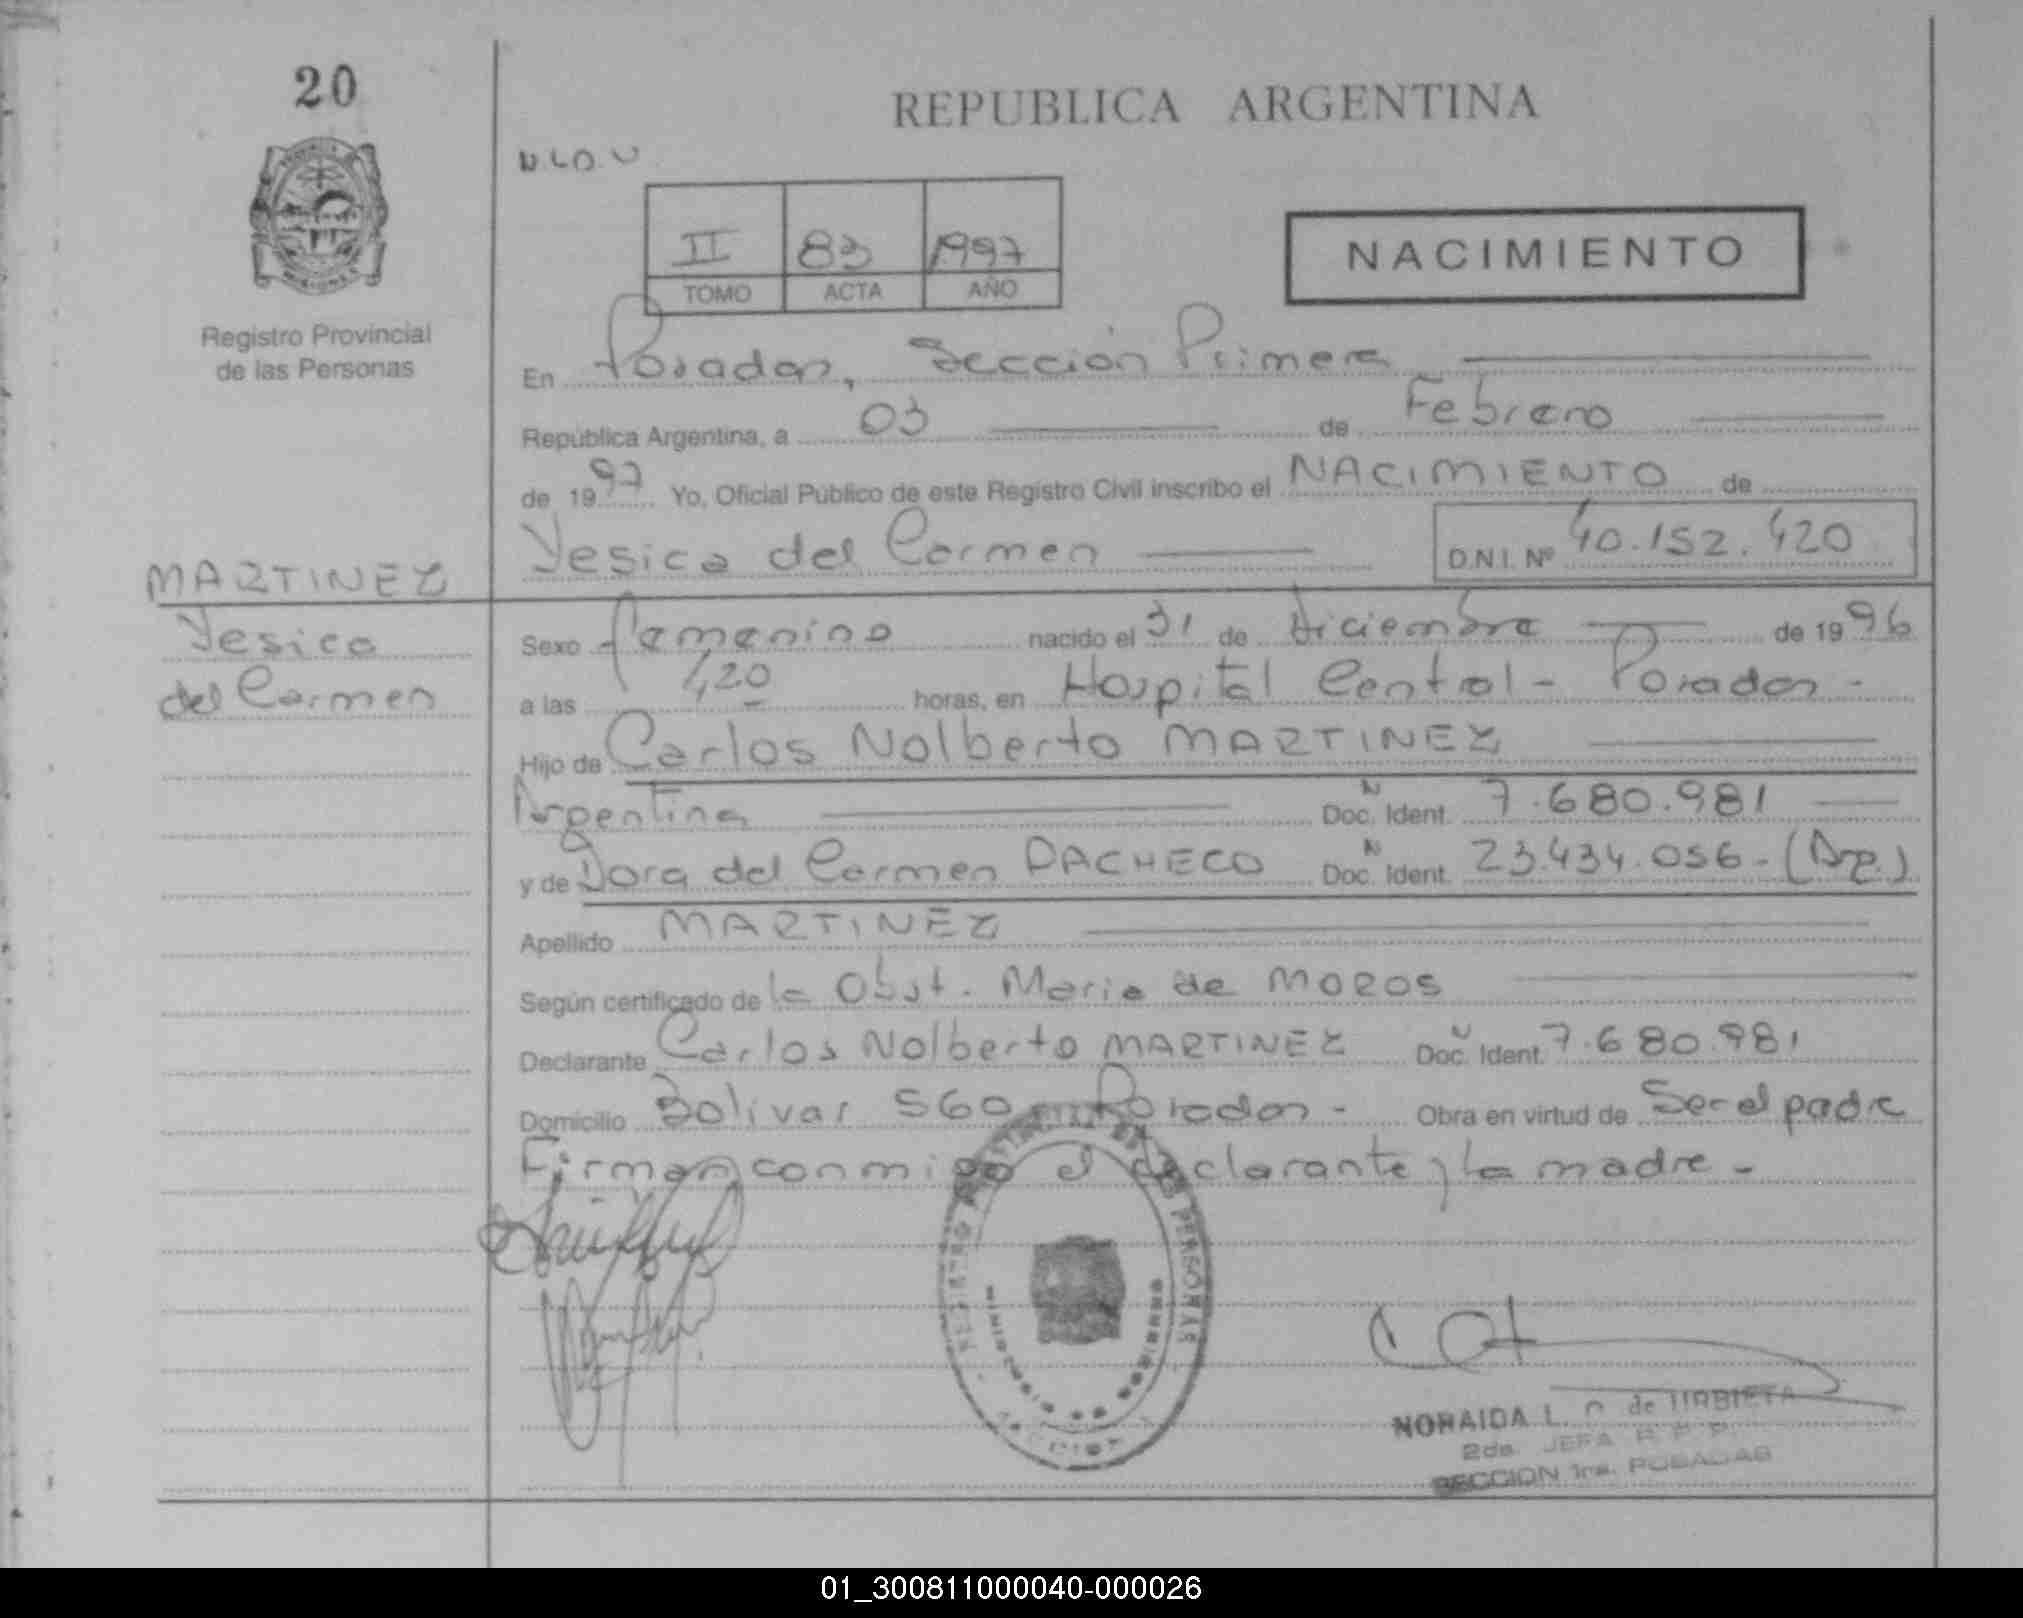 20
REPUBLICA ARGENTINA
II 83 1997
TOMO ACTA AÑO
NACIMIENTO
Registro Provincial
de las Personas
En Posadas, Sección Primera
República Argentina, a 03 de Febrero
de 1997 Yo, Oficial Público de este Registro Civil inscribo el NACIMIENTO de
Yesica del Carmen D.N.I. Nº 40.152.420
MARTINEZ
Yesica
del Carmen
Sexo femenino nacido el 31 de diciembre de 1996
a las 4,20 horas, en Hospital Central - Posadas -
Hijo de Carlos Nolberto MARTINEZ
Argentina Doc. Ident. 7.680.981
y de Dora del Carmen PACHECO Doc. Ident. 23.434.056 - (Arg.)
Apellido MARTINEZ
Según certificado de la Obst. Maria de MOROS
Declarante Carlos Nolberto MARTINEZ Doc. Ident. 7.680.981
Domicilio Bolivar 560 - Posadas - Obra en virtud de Ser el padre
Firman conmigo el declarante y la madre -
NORAIDA L. de URBIETA
2da. JEFA R P P
SECCION 1ra. POSADAS
01_300811000040-000026